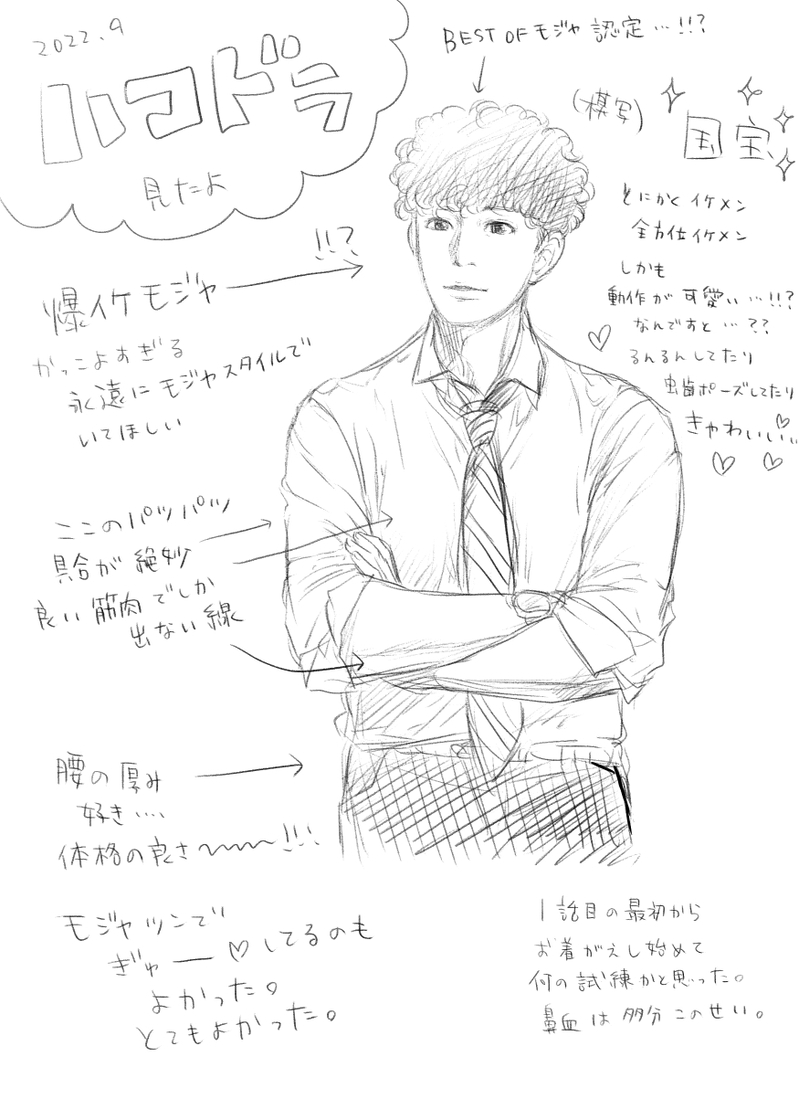 2022.9
ハコドラ
見たよ
BEST OFモジャ 認定…!!?
(模写)
国宝
とにかく イケメン
全方位イケメン
しかも
動作が 可愛い…!!?
なんですと…??
るんるんしてたり
虫歯ポーズしてたり
きゃわいい…
!!?
爆イケモジャ
かっこよすぎる
永遠に モジャスタイルで
いてほしい
ここのパツパツ
具合が 絶妙
良い 筋肉でしか
出ない線
腰の厚み
好き…
体格の良さ〜〜!!!
モジャツンで
ぎゅー♡してるのも
よかった。
とてもよかった。
1話目の最初から
お着がえし始めて
何の試練かと思った。
鼻血は多分このせい。